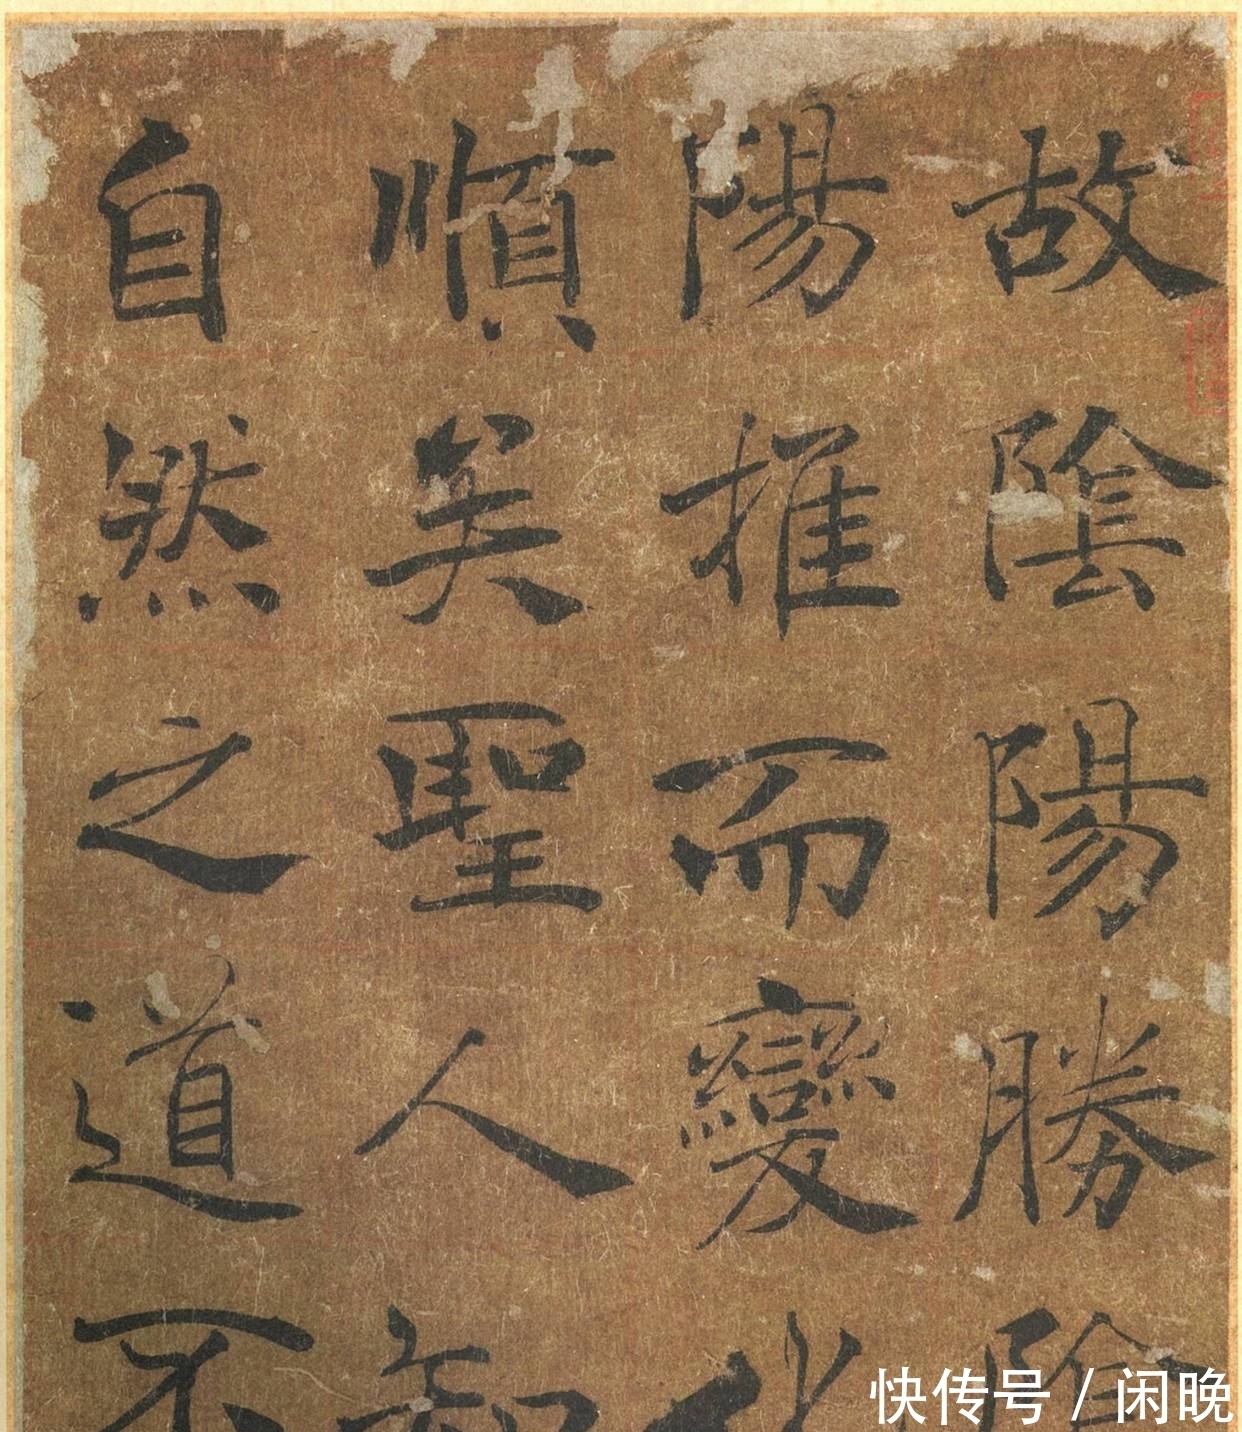 故陰陽勝陰
陽推而變化
順矣聖人知
自然之道不
快传号 / 闲晚